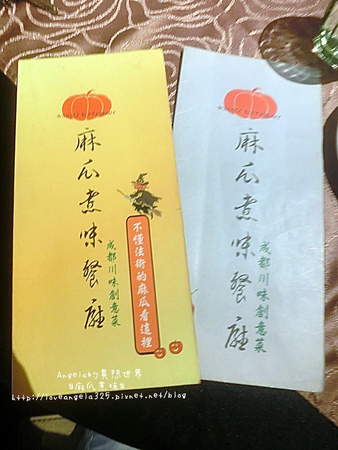 麻瓜煮味餐廳
成都川味創意菜
不懂法術的麻瓜看這裡
麻瓜煮味餐廳
成都川味創意菜
Angelaの異想世界
@麻瓜煮味@
http://loveangela325.pixnet.net/blog